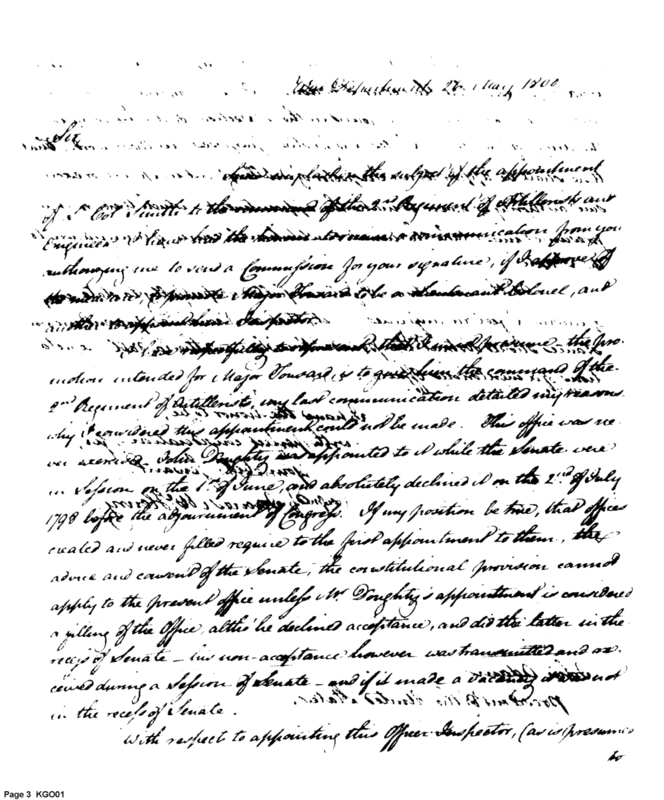 War Department 26 May 1800
Sir
the subject of the appointment
of L Col Smith to the command of the 2nd Regiment of Artillerists and
Engineers I have had the honor to receive a communication from you
authorizing me to send a Commission for your signature, if I approve of
to promote Major Toussard to be a Lieutenant Colonel, and
to appoint him Inspector.
respectfully to represent, that I presume the pro-
motion intended for Major Toussard, is to give him the command of the
2nd Regiment of Artillerists, my last communication detailed my reasons
why I considered this appointment could not be made. This office was ne-
ver exercised. John Doughty was appointed to it while the Senate were
in Session on the 1st of June, and absolutely declined it on the 2nd of July
1798 before the adjournment of Congress. If my position be true, that offices
created and never filled require to the first appointment to them, the
advice and consent of the Senate, the constitutional provision cannot
apply to the present office unless Mr Doughty's appointment is considered
a filling of the Office, altho he declined acceptance, and did the latter in the
recess of Senate - his non-acceptance however was transmitted and re-
ceived during a Session of Senate - and if it made a vacancy it was not
in the recess of Senate.
With respect to appointing this Officer Inspector, (as is presumed
to
Page 3 KGO01